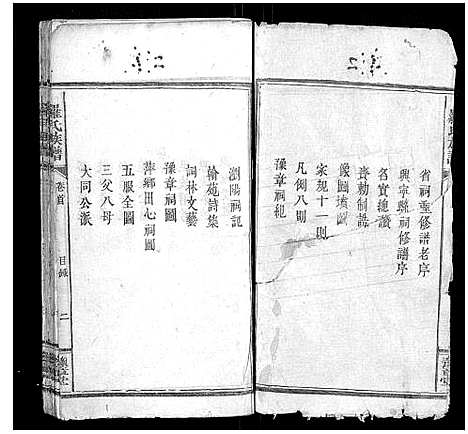 省祠重修譜老序
興寧縣祠修譜序
名賢總讚
喪勅制誥
像圖墳圖
家規十一則
凡例八則
豫章祠紀
瀏陽祠記
翰苑詩集
詞林文藝
豫章祠圖
萍鄉田心祠圖
五服全圖
三父八母
大同公派
羅氏族譜
卷首
目錄
二
豫章堂